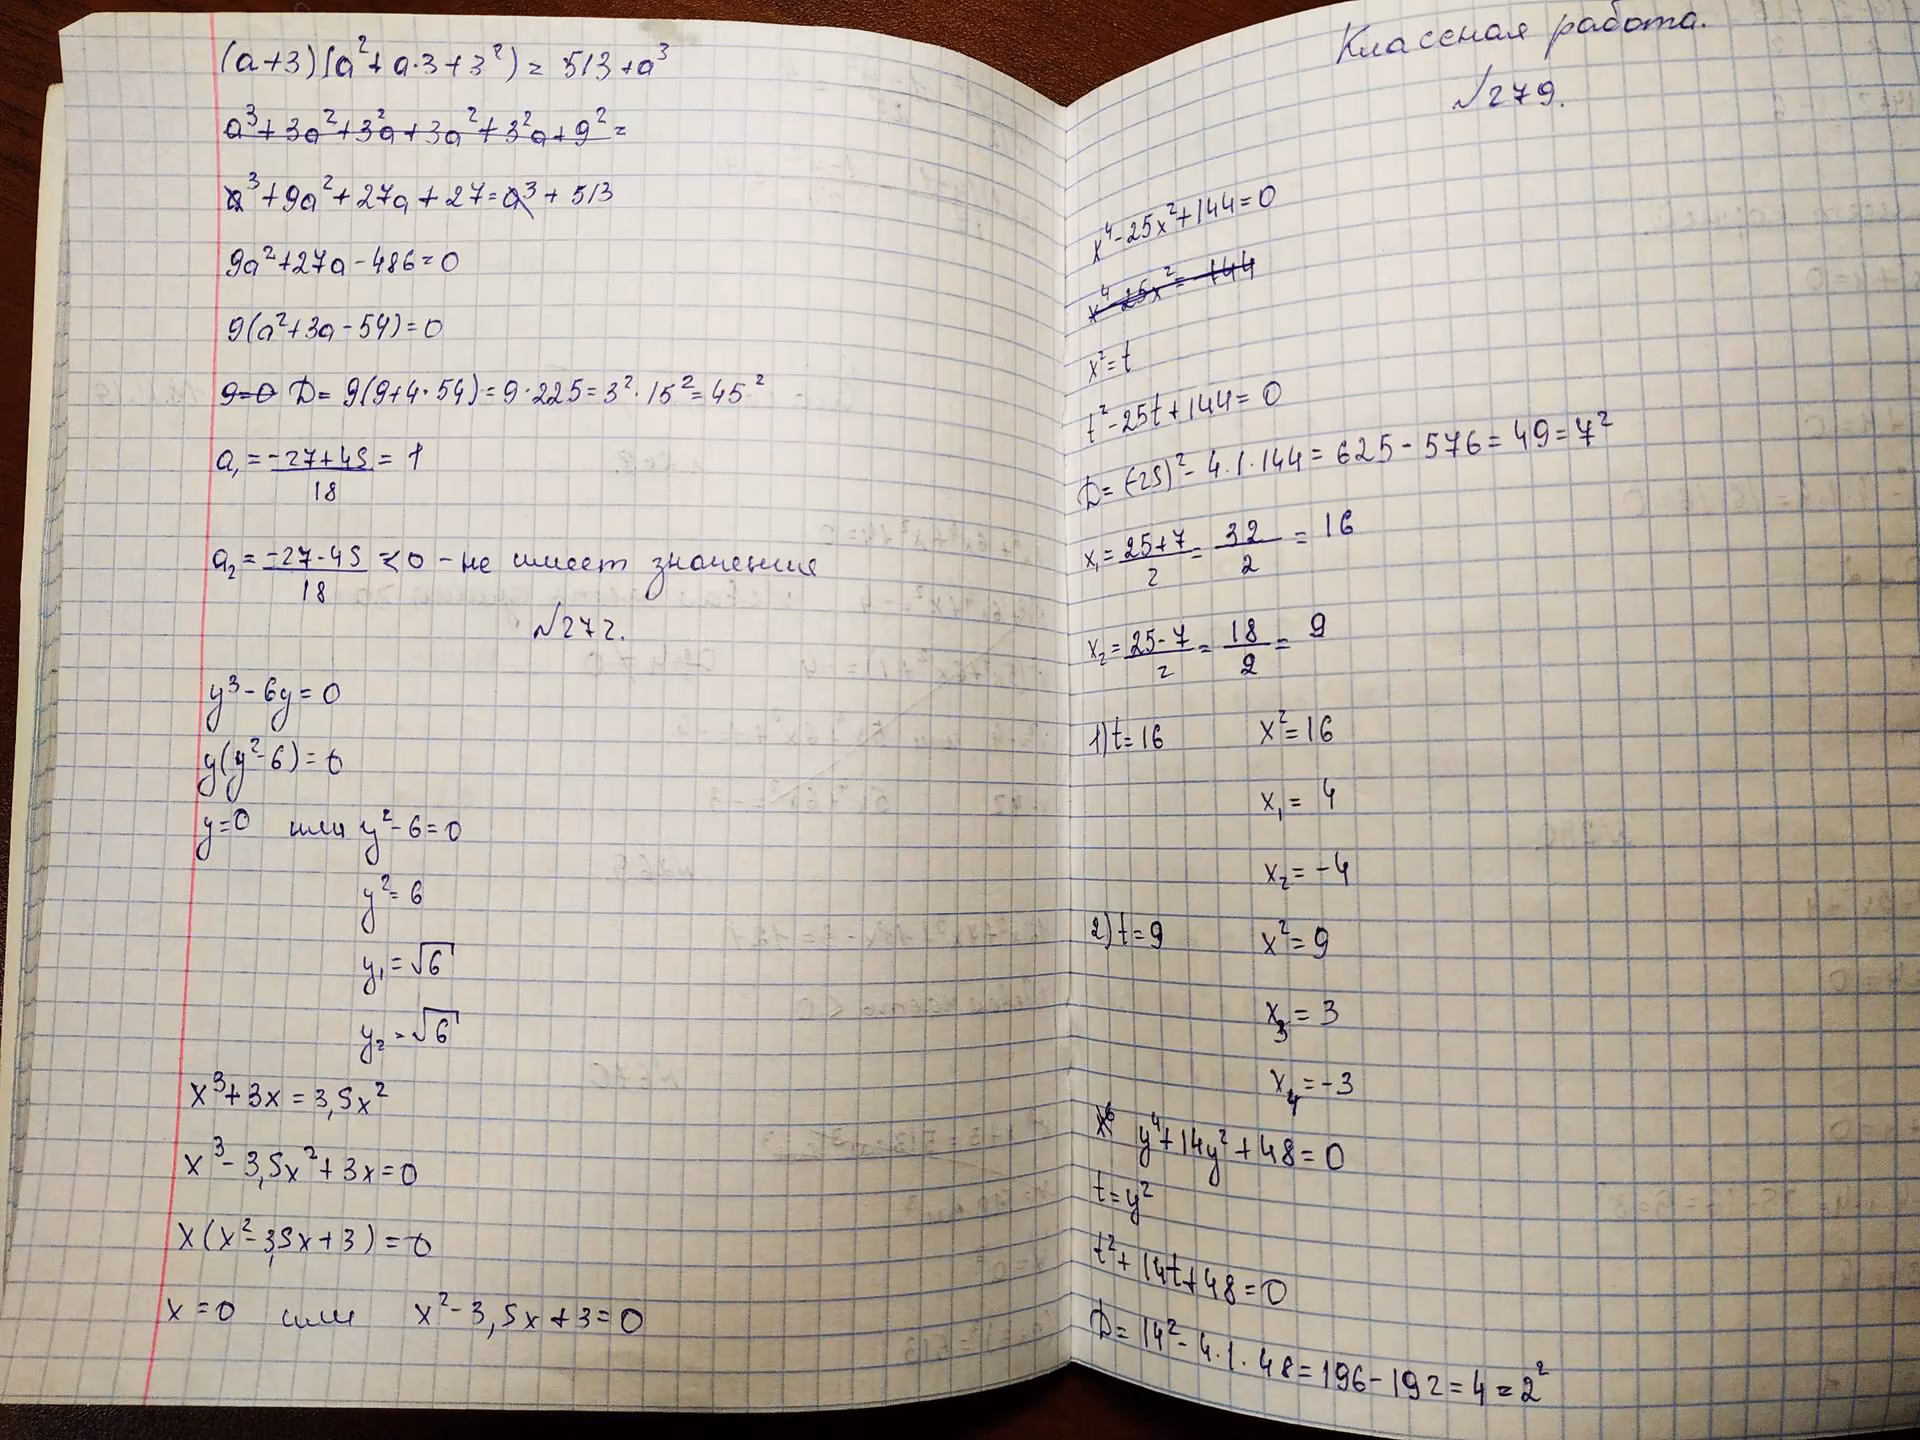 (a+3)(a²+a·3+3²)=513+a³
a³+3a²+3²a+3a²+3²a+9²=
a³+9a²+27a+27=a³+513
9a²+27a-486=0
9(a²+3a-54)=0
9=0 D=9(9+4·54)=9·225=3²·15²=45²
a₁=(-27+45)/18=1
a₂=(-27-45)/18<0 - не имеет значения
№272.
y³-6y=0
y(y²-6)=0
y=0 или y²-6=0
y²=6
y₁=√6
y₂-√6
x³+3x=3,5x²
x³-3,5x²+3x=0
x(x²-3,5x+3)=0
x=0 или x²-3,5x+3=0
Классная работа.
№279.
x⁴-25x²+144=0
x⁴-25x²=-144
x²=t
t²-25t+144=0
D=(-25)²-4·1·144=625-576=49=7²
x₁=(25+7)/2=32/2=16
x₂=(25-7)/2=18/2=9
1) t=16 x²=16
x₁=4
x₂=-4
2) t=9 x²=9
x₃=3
x₄=-3
y⁴+14y²+48=0
t=y²
t²+14t+48=0
D=14²-4·1·48=196-192=4=2²